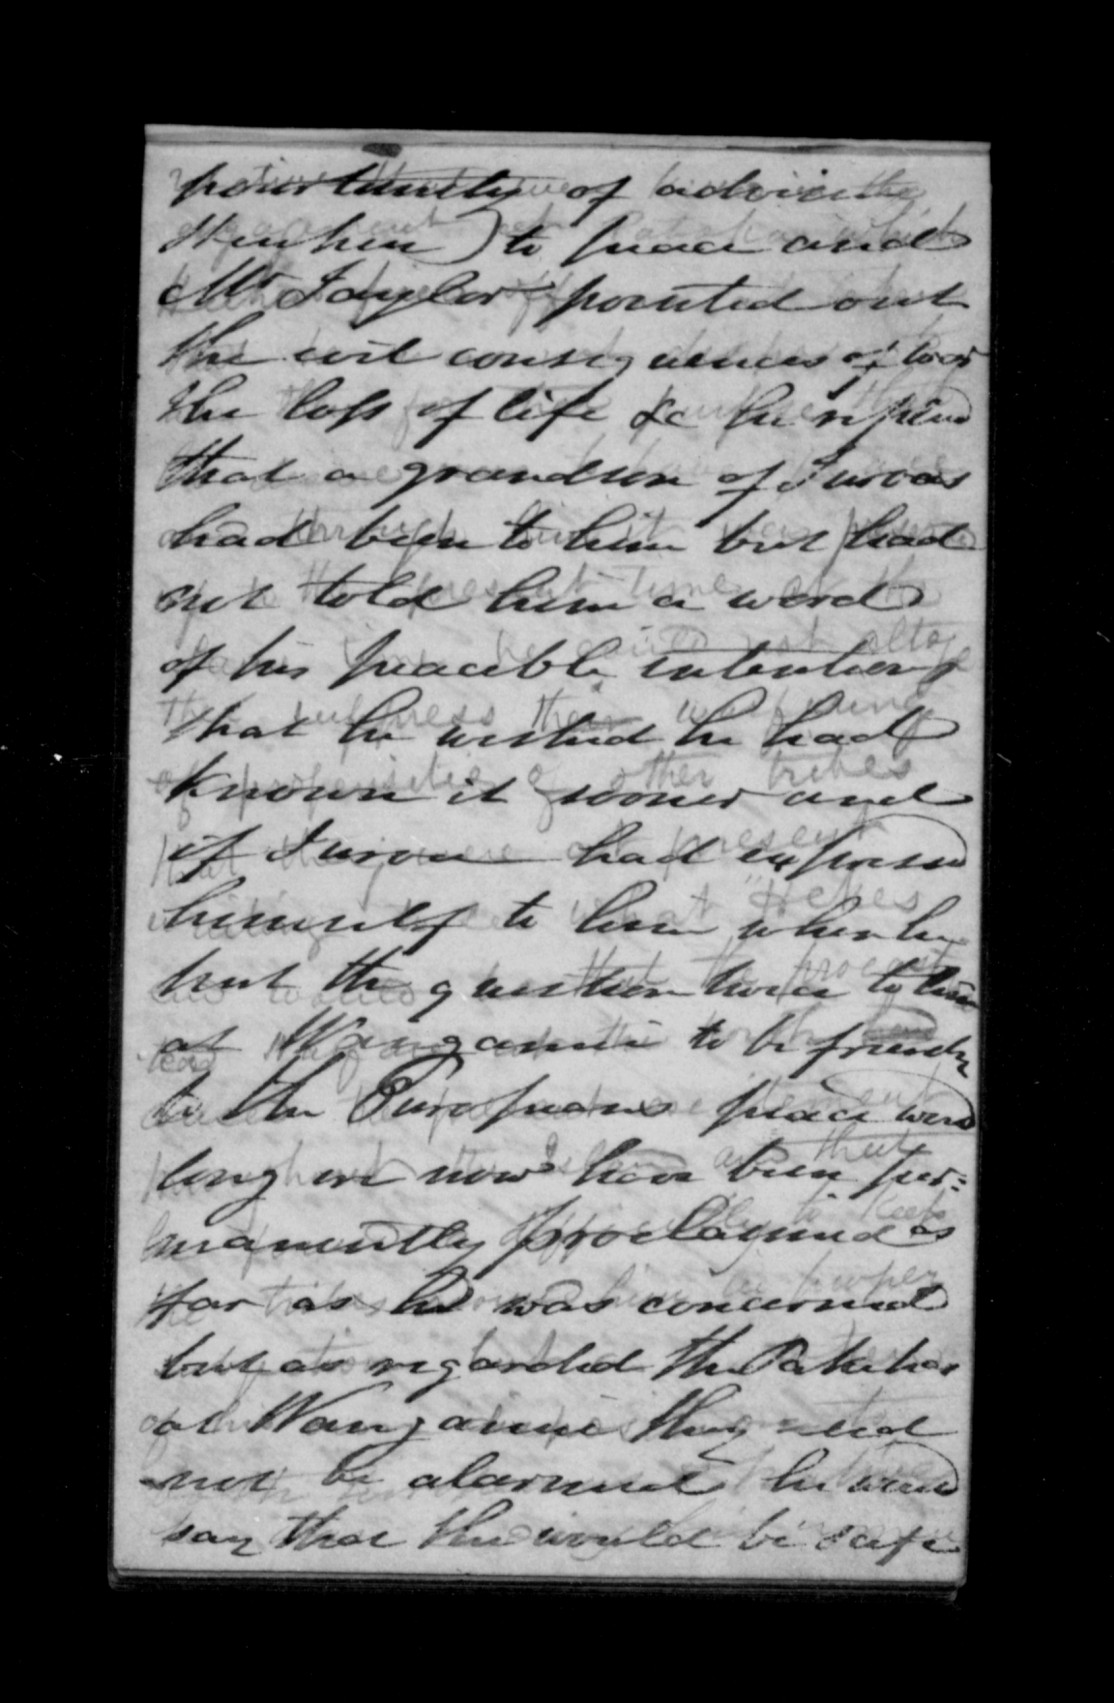 portunity of advising the
Heuheu) to peace and
Mr Taylor pointed out
the evil consequences of war
the loss of life &c he replied
that a grandson of Turoas
had been to him but had
not told him a word
of his peacible intentions
that he wished he had
known it sooner and
if Turoa had expressed
himself to him when he
put the question twice to him
at Wanganui to be friendly
to the Europeans peace would
long ere now have been per=
manently proclaimed as
far as he was concerned
but as regarded the Pakehas
at Wanganui they need
not be alarmed he would
say that they would be safe